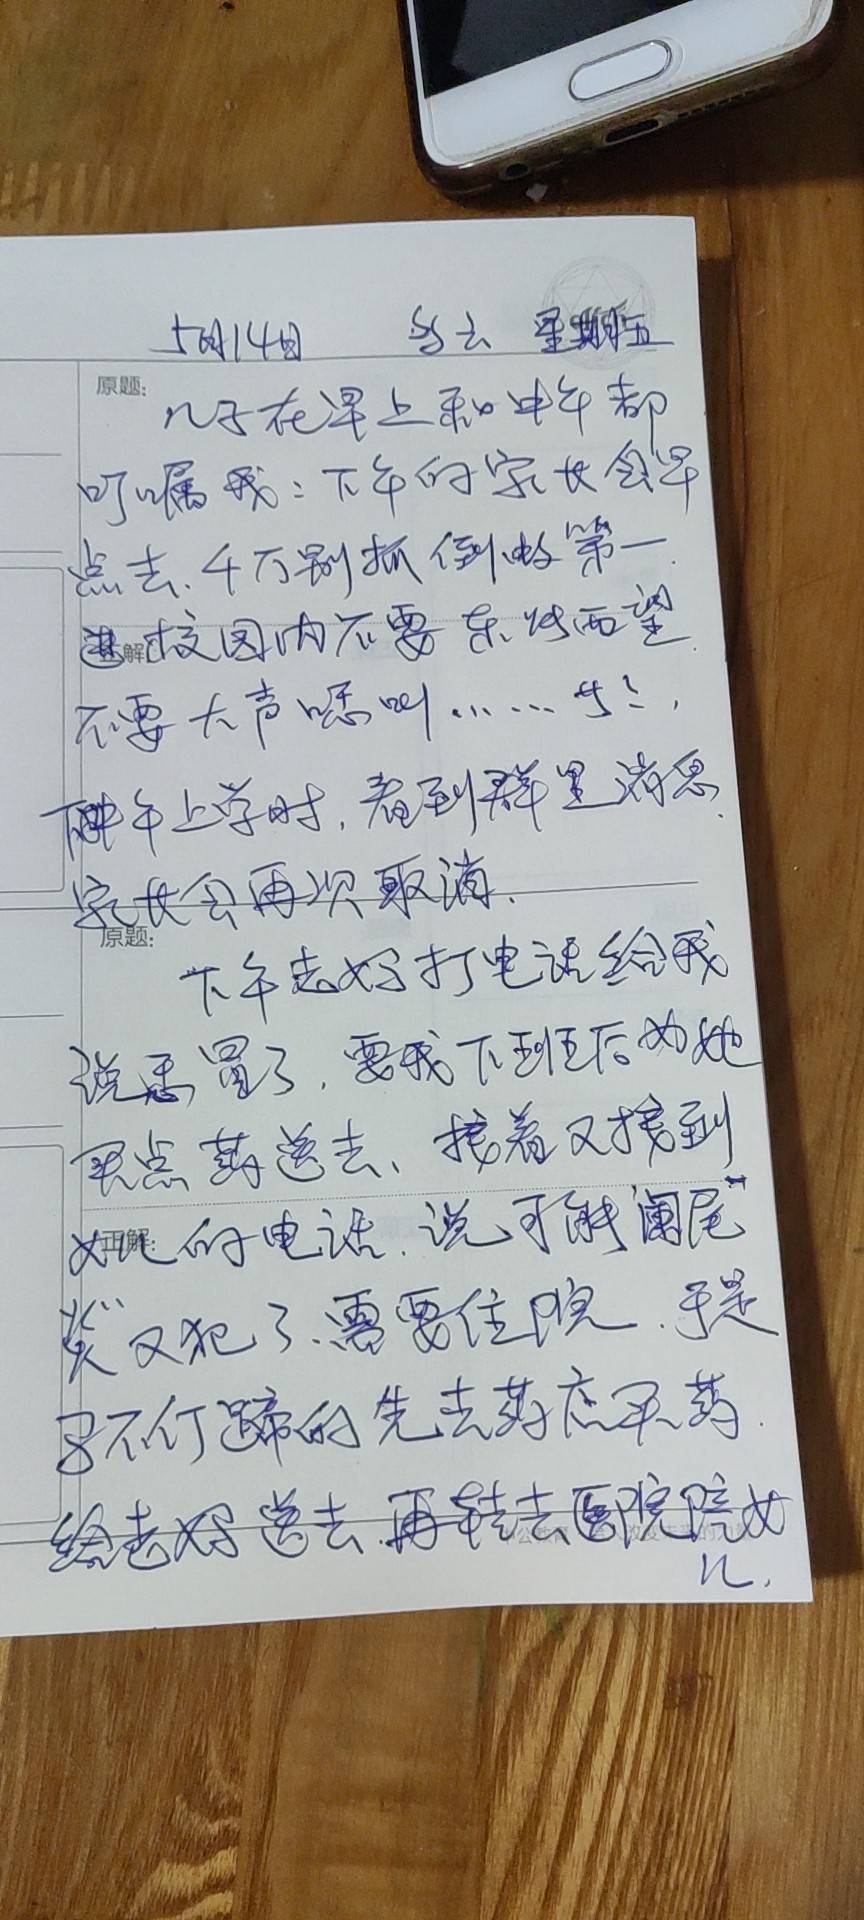 5月14日 多云 星期五
原题:
儿子在早上和中午都
叮嘱我：下午的家长会早
点去、千万别抓倒数第一.
进校园内不要东张西望.
不要大声喊叫……
下午上学时，看到群里消息.
家长会再次取消.
原题:
下午老妈打电话给我
说感冒了，要我下班后为她
买点药送去、接着又接到
女儿的电话.说可能"阑尾
正解:
炎"又犯了.需要住院.于是
马不停蹄的先去药店买药.
给老妈送去.再转去医院陪女
儿.
中公教育